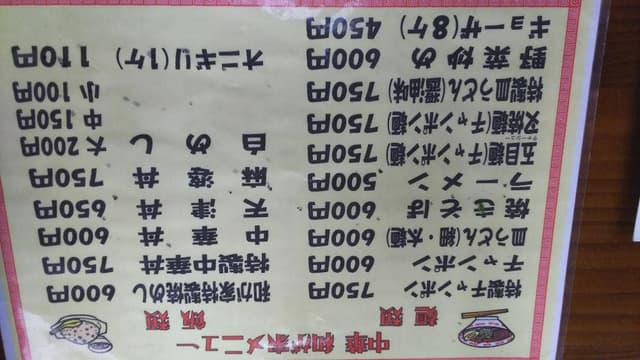 中華 和が家メニュー
麺類
特製チャンポン 750円
チャンポン 600円
皿うどん(細・太麺) 600円
焼きそば 600円
ラーメン 500円
五目麺(チャンポン麺) 750円
叉焼麺(チャンポン麺) 750円
チャーシュー
特製皿うどん(醤油味) 750円
野菜炒め 600円
ギョーザ(8ケ) 450円
飯類
和が家特製焼めし 600円
特製中華丼 750円
中華丼 600円
天津丼 650円
麻婆丼 750円
白めし 大200円
中150円
小100円
オニギリ(1ケ) 110円